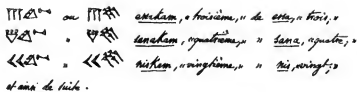 𒐈𒄰 ou 𒐈 essekam, « troisième, » de esse, « trois, »
" sanakam, « quatrième, » " sana, « quatre, »
𒌋𒌋 " 𒌋𒌋 niskam, « vingtième, » " nis, « vingt; »
et ainsi de suite.